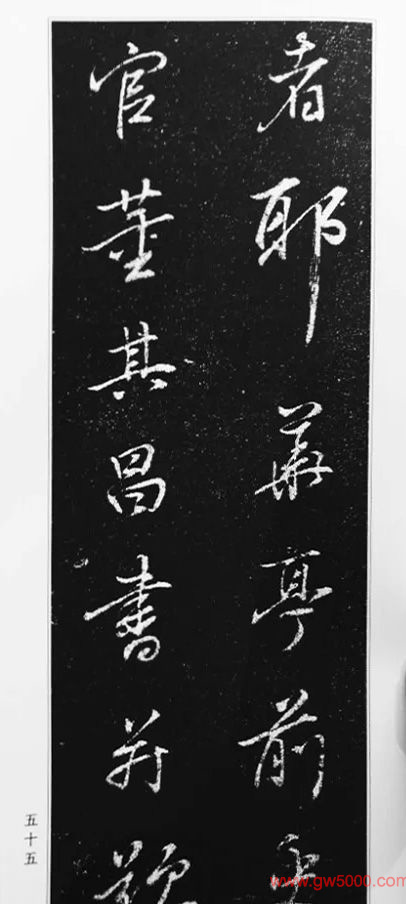 者耶華亭前史
官董其昌書并題
五十五
www.gw5000.com